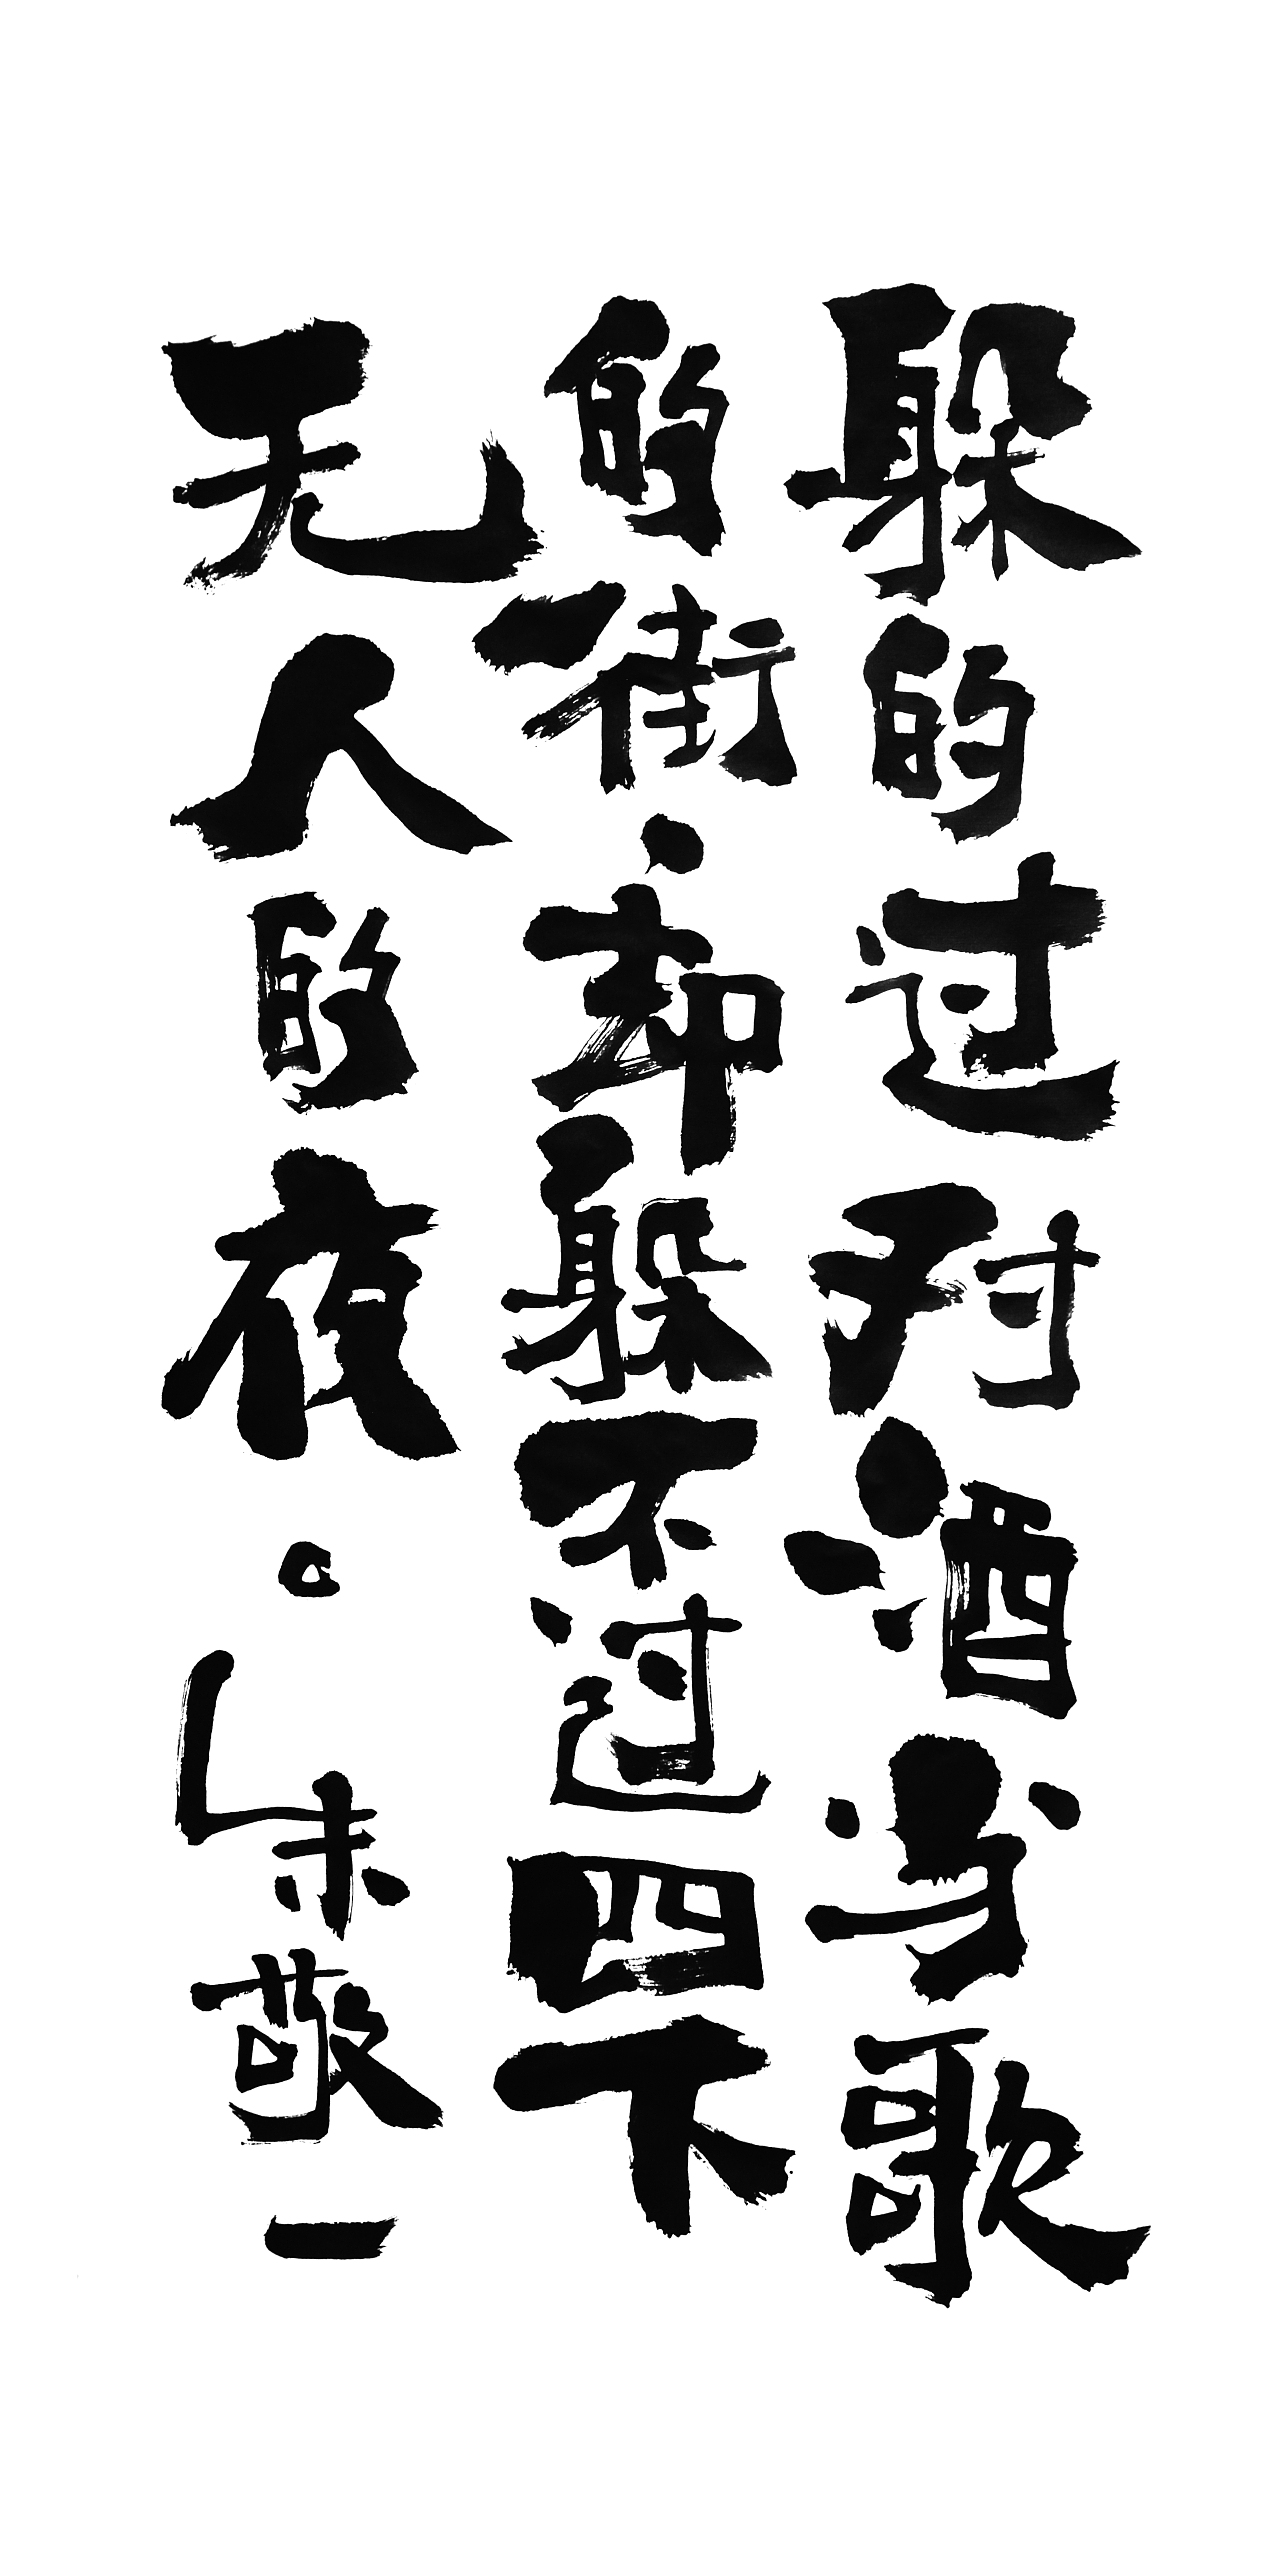 躲的过对酒当歌
的街，却躲不过四下
无人的夜。
朱敬一